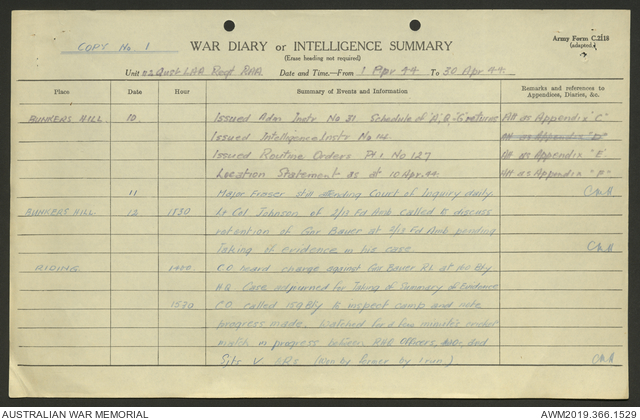 COPY No. 1
WAR DIARY or INTELLIGENCE SUMMARY
(Erase heading not required)
Army Form C.2118
(adapted)
Unit Aust LAA Regt RAA Date and Time—From 1 Apr 44 To 30 Apr 44
Place Date Hour Summary of Events and Information Remarks and references to Appendices, Diaries, &c.
BUNKERS HILL 10 Issued Adm Instr No 31 Schedule of 'A, Q' Att as Appendix "C"
Issued Intelligence Instr No 14 Att as Appendix "D"
Issued Routine Orders Pt 1 No 127 Att as Appendix "E"
Location Statement as at 10 Apr 44 Att as Appendix "F"
11 Major Fraser still attending Court of Inquiry daily.
BUNKERS HILL 12 1130 Lt Col Johnson of 2/11 Fd Amb called to discuss
retention of Gnr Bauer at Fd Amb pending
Taking of evidence in his case.
CO heard charge against Gnr Bauer RL at 160 Bty
HQ Case adjourned for Taking of Summary of Evidence
1530 CO called 159 Bty to inspect camp and note
progress made. Watched for a few minutes cricket
match in progress between RHQ Officers, and
Sjts V ORs (Won by former by 1 run.)
AUSTRALIAN WAR MEMORIAL AWM2019.366.1529